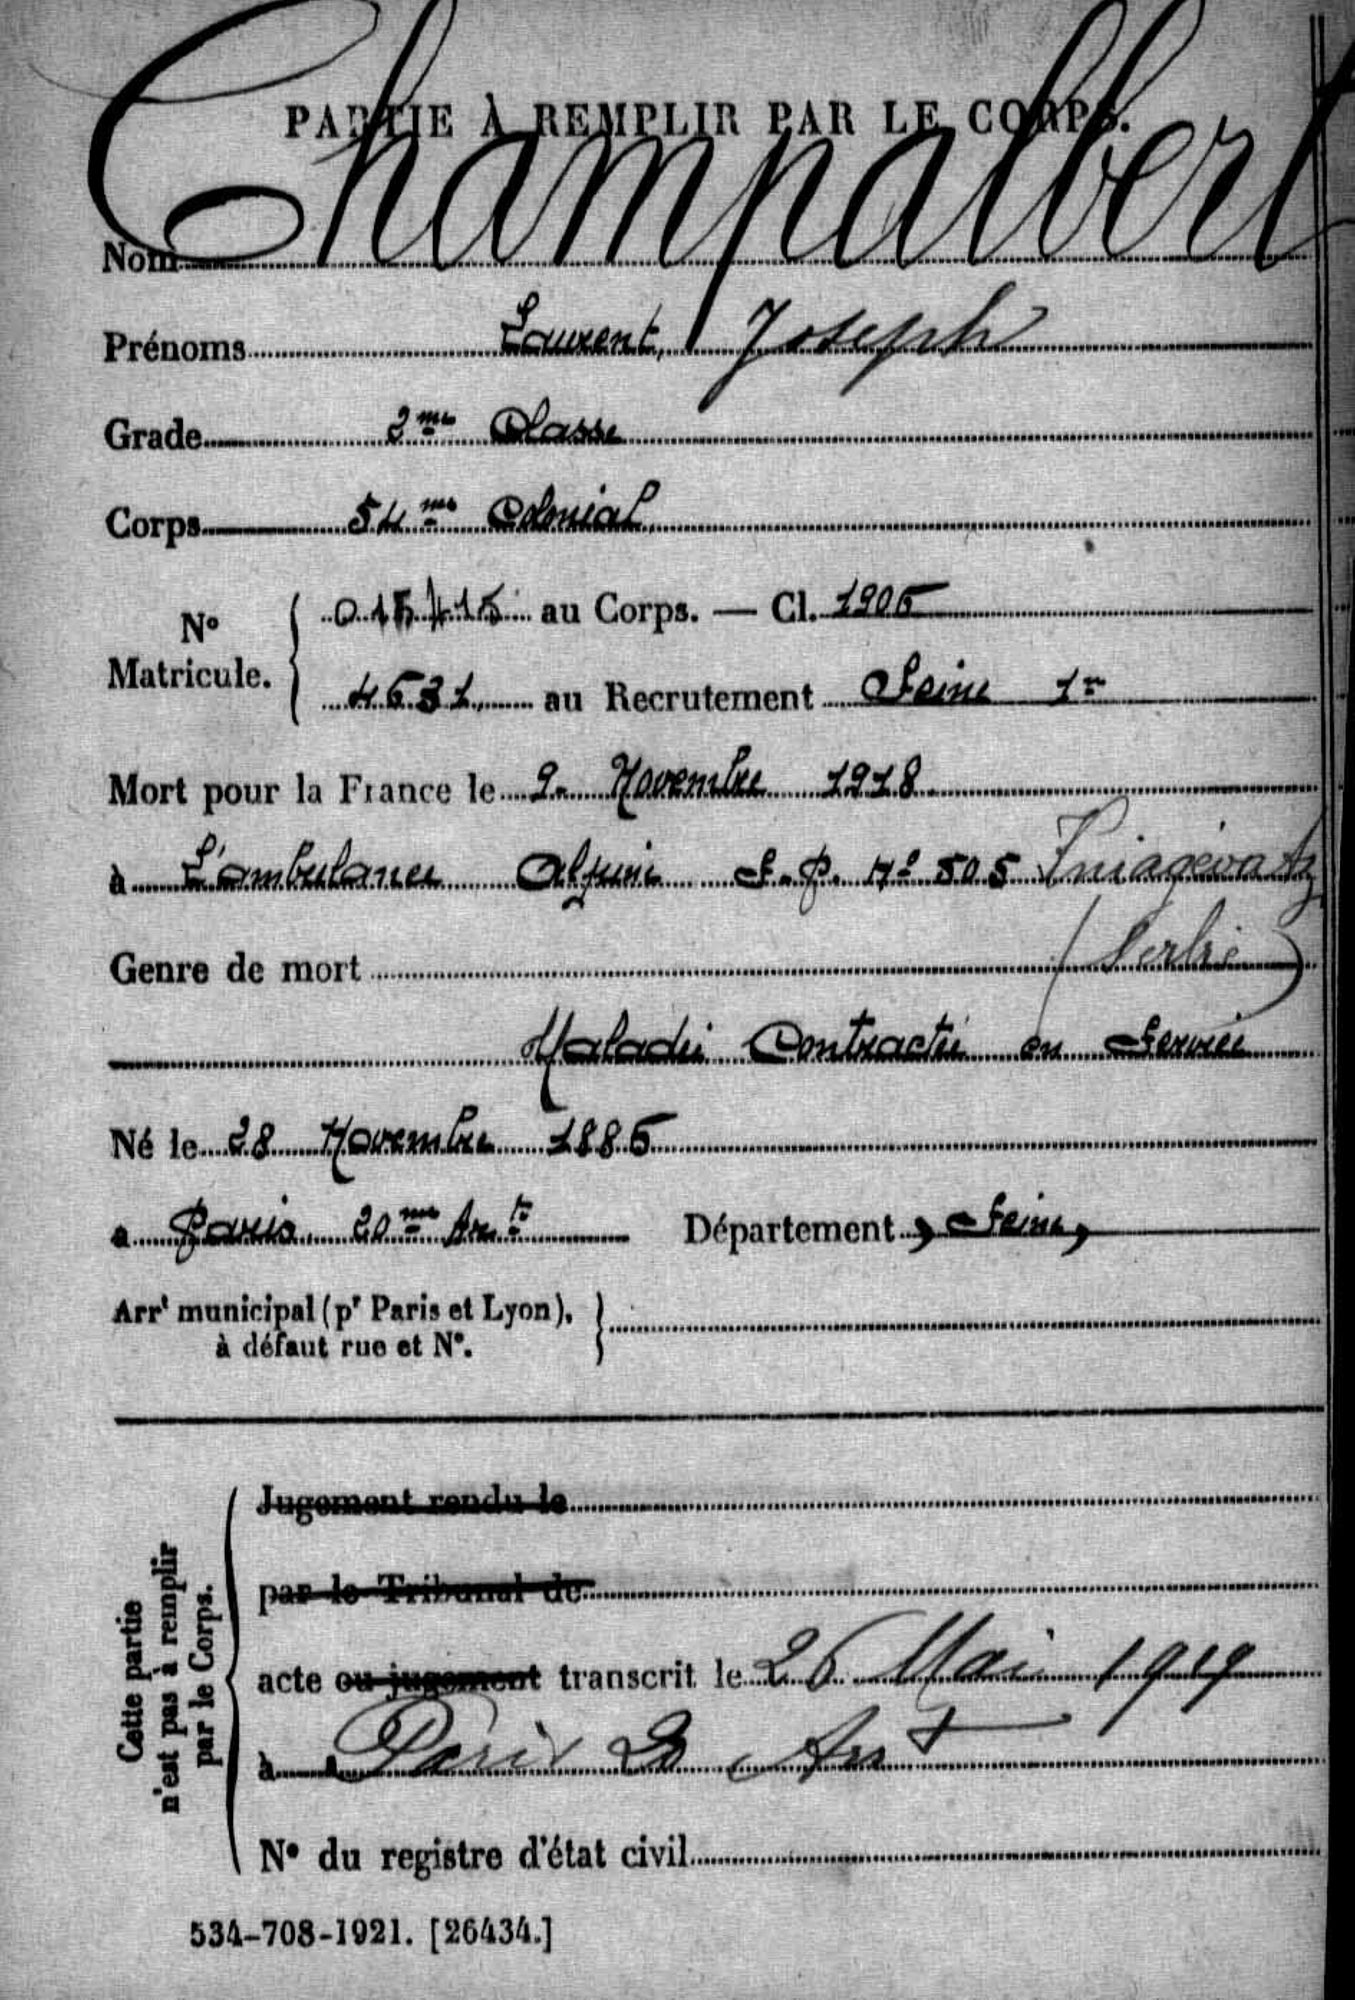 PARTIE À REMPLIR PAR LE CORPS.
Nom Champalbert
Prénoms Laurent, Joseph
Grade 2me Classe
Corps 54me Colonial
No Matricule. { 015415 au Corps. — Cl. 1906
4631 au Recrutement Seine 1er
Mort pour la France le 9. Novembre 1918
à L'ambulance Alpine S. P. No 505 Kniagévatz
(Serbie)
Genre de mort
Maladie Contractée en Service
Né le 28 Novembre 1886
à Paris. 20me Arrt Département , Seine,
Arrt municipal (pr Paris et Lyon), }
à défaut rue et No.
Cette partie
n'est pas à remplir
par le Corps.
Jugement rendu le
par le Tribunal de
acte ou jugement transcrit le 26 Mai 1919
à Paris 20 Arrt
No du registre d'état civil
534-708-1921. [26434.]